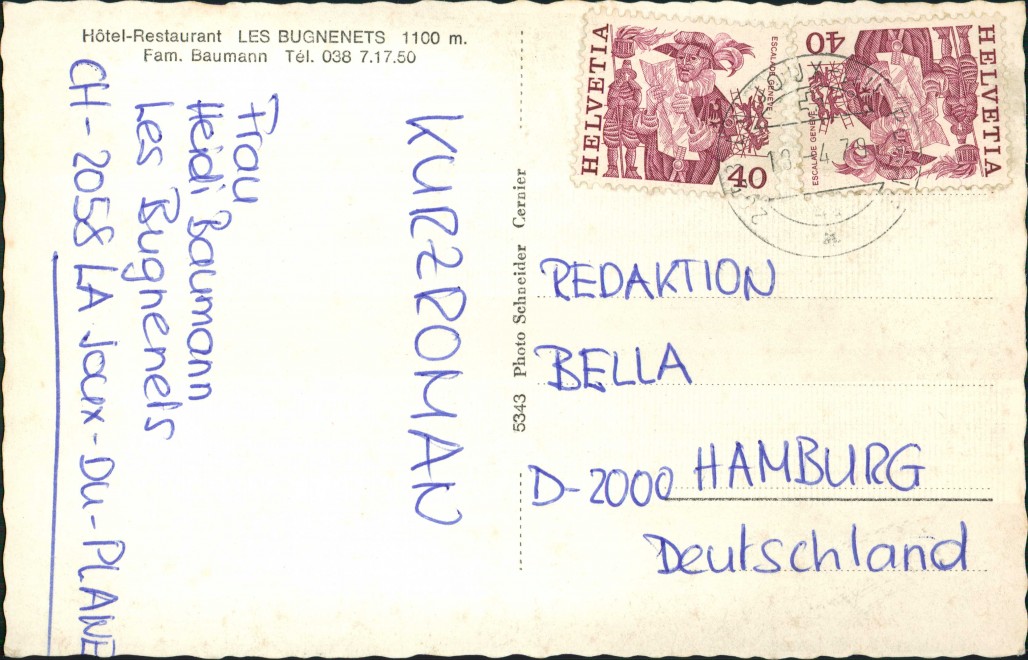 Hôtel-Restaurant LES BUGNENETS 1100 m.
Fam. Baumann Tél. 038 7.17.50
Frau
Heidi Baumann
Les Bugnenets
CH-2058 LA Joux-Du-PLANE
KURZROMAN
5343 Photo Schneider Cernier
HELVETIA
ESCALADE GENÈVE
40
HELVETIA
ESCALADE GENÈVE
40
REDAKTION
BELLA
D-2000 HAMBURG
Deutschland